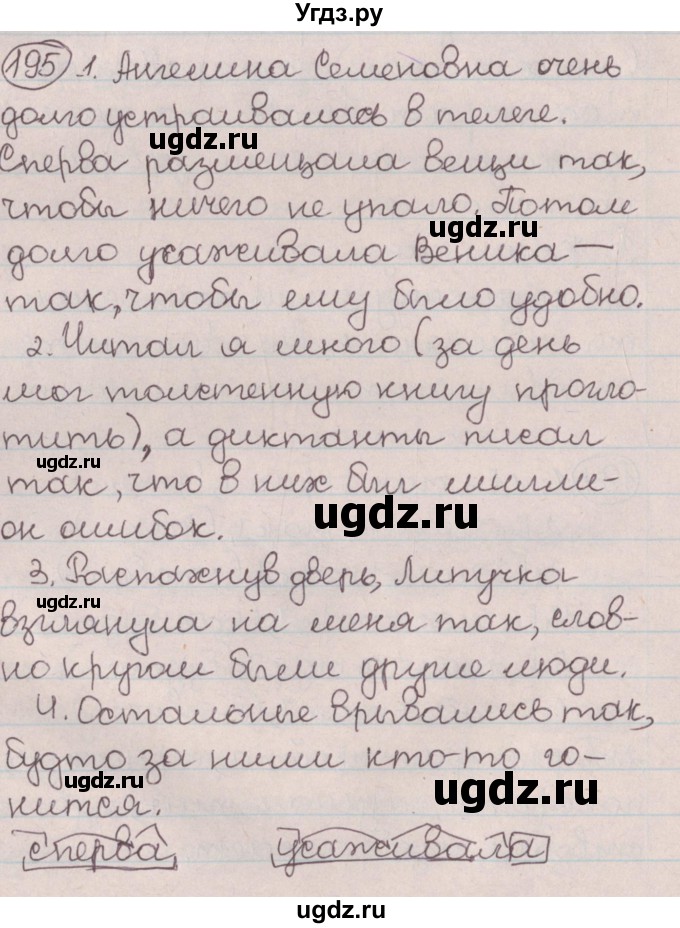 Угдз.ру
195 1. Ангелина Семеновна очень
долго устраивалась в телеге.
ugdz.ru
Сперва размещала вещи так,
чтобы ничего не упало. Потом
ugdz.ru
долго усаживала Веника —
так, чтобы ему было удобно.
2. Читал я много (за день
мог толстенную книгу прогло-
тить), а диктанты писал
ugdz.ru
так, что в них был милли-
ugdz.ru
он ошибок.
3. Распахнув дверь, Липучка
ugdz.ru
взглянула на меня так, слов-
но кругом были другие люди.
4. Остальные врывались так,
будто за ними кто-то го-
ugdz.ru
ugdz.ru
нится.
сперва усаживала
ugdz.ru